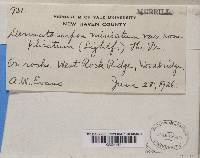 921.
MERRILL
HERBARIUM OF YALE UNIVERSITY
NEW HAVEN COUNTY
Dermatocarpon miniatum var. com-
plicatum (Lightf.) Th. Fr.
On rocks, West Rock Ridge, Woodbridge.
A.W. Evans June 28, 1926.